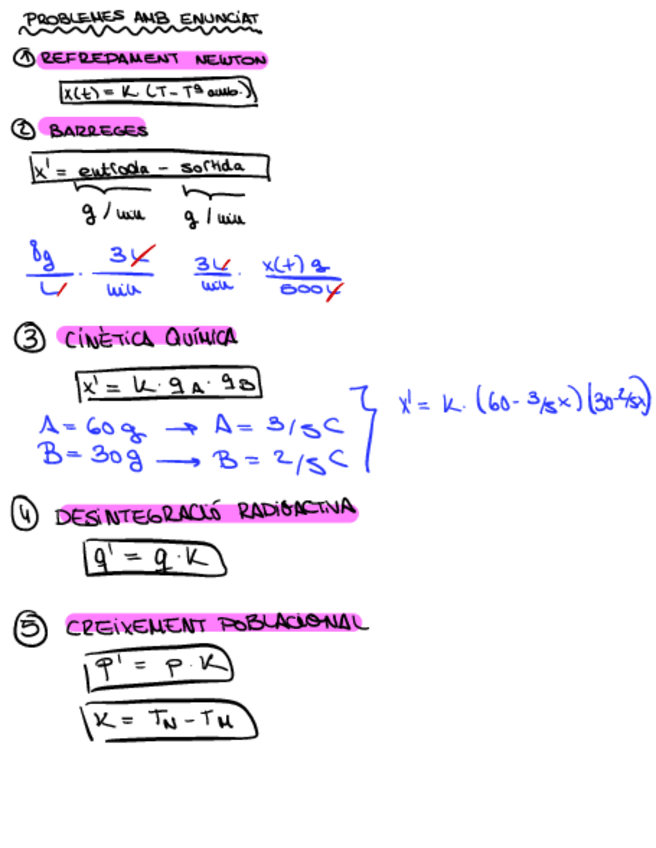 PROBLEMES AMB ENUNCIAT
① REFREDAMENT NEWTON
x(t) = K (T - Tª amb.)
② BARREGES
x' = entrada - sortida
g / min g / min
8g/L · 3L/min 3L/min · x(t) g/500L
③ CINÈTICA QUÍMICA
x' = K · q A · q B
A = 60g → A = 3/5 C
B = 30g → B = 2/5 C
x' = K · (60 - 3/5x)(30-2/5x)
④ DESINTEGRACIÓ RADIOACTIVA
q' = q · K
⑤ CREIXEMENT POBLACIONAL
P' = p · K
K = TN - TM